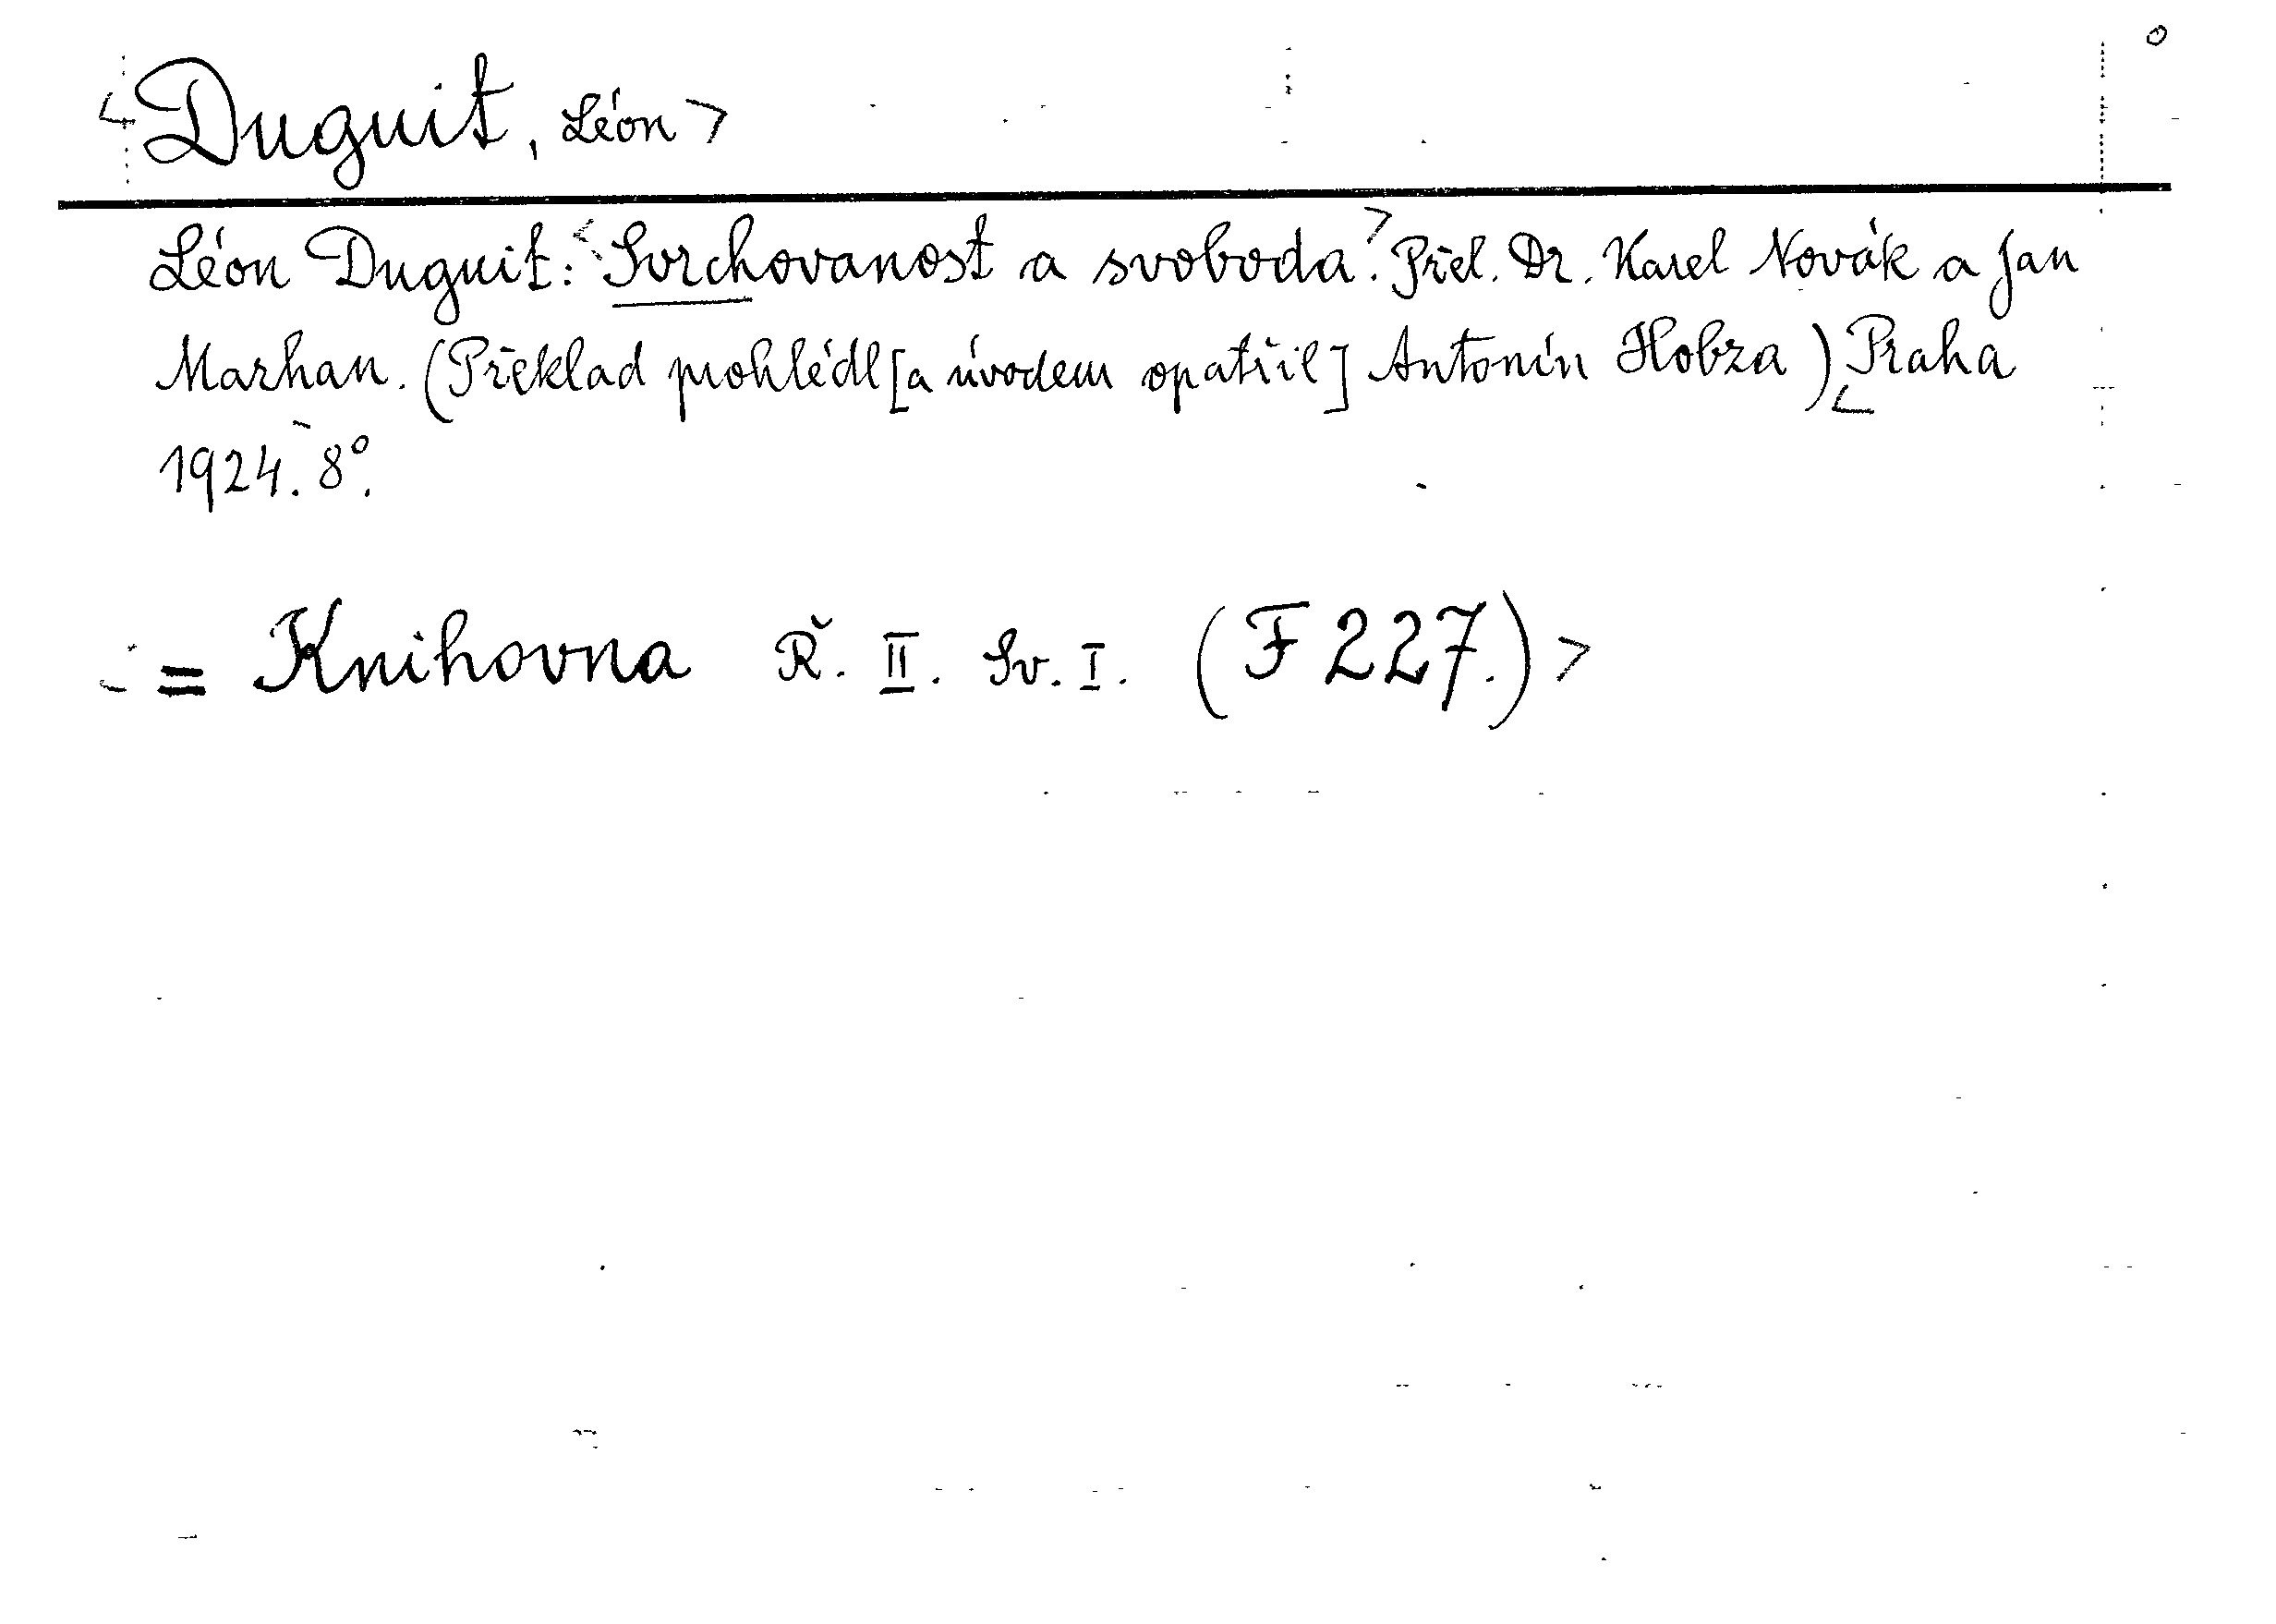 <Duguit, Léon>
Léon Duguit: <Svrchovanost a svoboda.> Přel. Dr. Karel Novák a Jan
Marhan. (Překlad prohlédl [a úvodem opatřil] Antonín Hobza) <Praha
1924. 8°.
= Knihovna Ř. II. Sv. I. (F 227.)>